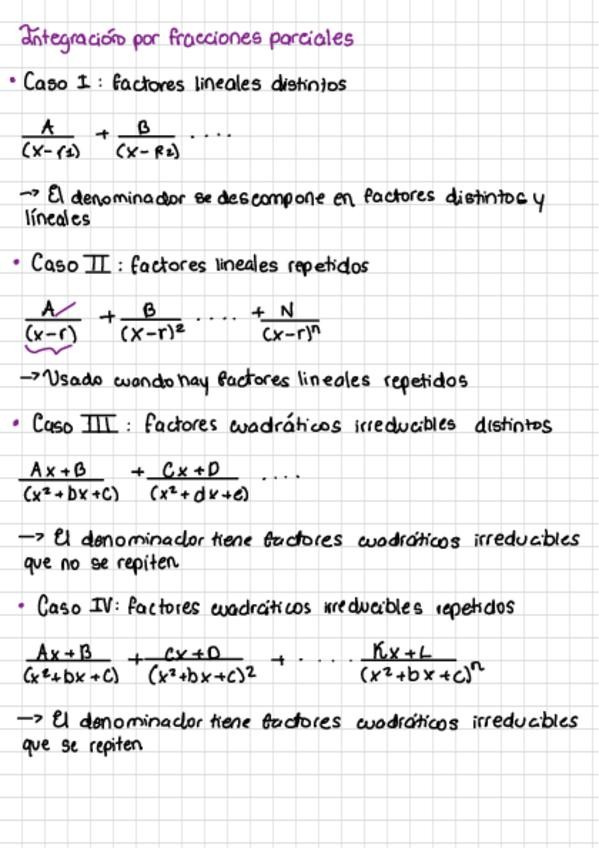 Integración por fracciones parciales
• Caso I : factores lineales distintos
A/(x-r1) + B/(x-R2) ....
→ El denominador se descompone en factores distintos y
líneales
• Caso II : factores lineales repetidos
A/(x-r) + B/(x-r)² .... + N/(x-r)ⁿ
→ Usado cuando hay factores lineales repetidos
• Caso III : factores cuadráticos irreducibles distintos
Ax+B/(x²+bx+c) + Cx+D/(x²+dx+e) ....
→ El denominador tiene factores cuadráticos irreducibles
que no se repiten
• Caso IV: factores cuadráticos irreducibles repetidos
Ax+B/(x²+bx+c) + Cx+D/(x²+bx+c)² + .... Kx+L/(x²+bx+c)ⁿ
→ El denominador tiene factores cuadráticos irreducibles
que se repiten